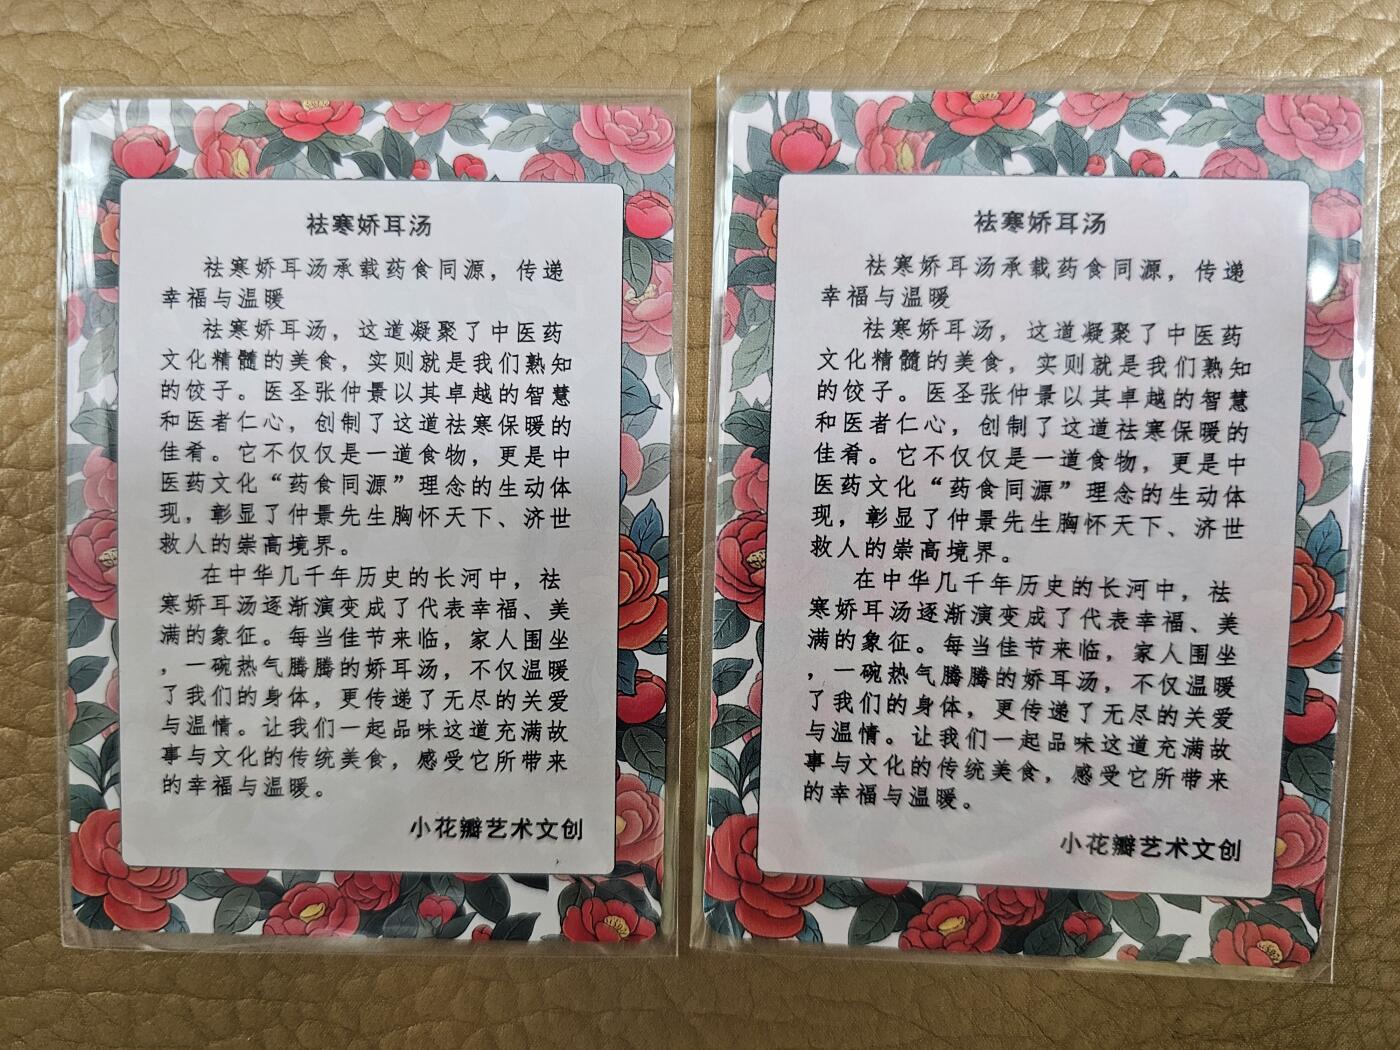 祛寒娇耳汤
祛寒娇耳汤承载药食同源，传递
幸福与温暖
祛寒娇耳汤，这道凝聚了中医药
文化精髓的美食，实则就是我们熟知
的饺子。医圣张仲景以其卓越的智慧
和医者仁心，创制了这道祛寒保暖的
佳肴。它不仅仅是一道食物，更是中
医药文化“药食同源”理念的生动体
现，彰显了仲景先生胸怀天下、济世
救人的崇高境界。
在中华几千年历史的长河中，祛
寒娇耳汤逐渐演变成了代表幸福、美
满的象征。每当佳节来临，家人围坐
，一碗热气腾腾的娇耳汤，不仅温暖
了我们的身体，更传递了无尽的关爱
与温情。让我们一起品味这道充满故
事与文化的传统美食，感受它所带来
的幸福与温暖。
小花瓣艺术文创
祛寒娇耳汤
祛寒娇耳汤承载药食同源，传递
幸福与温暖
祛寒娇耳汤，这道凝聚了中医药
文化精髓的美食，实则就是我们熟知
的饺子。医圣张仲景以其卓越的智慧
和医者仁心，创制了这道祛寒保暖的
佳肴。它不仅仅是一道食物，更是中
医药文化“药食同源”理念的生动体
现，彰显了仲景先生胸怀天下、济世
救人的崇高境界。
在中华几千年历史的长河中，祛
寒娇耳汤逐渐演变成了代表幸福、美
满的象征。每当佳节来临，家人围坐
，一碗热气腾腾的娇耳汤，不仅温暖
了我们的身体，更传递了无尽的关爱
与温情。让我们一起品味这道充满故
事与文化的传统美食，感受它所带来
的幸福与温暖。
小花瓣艺术文创